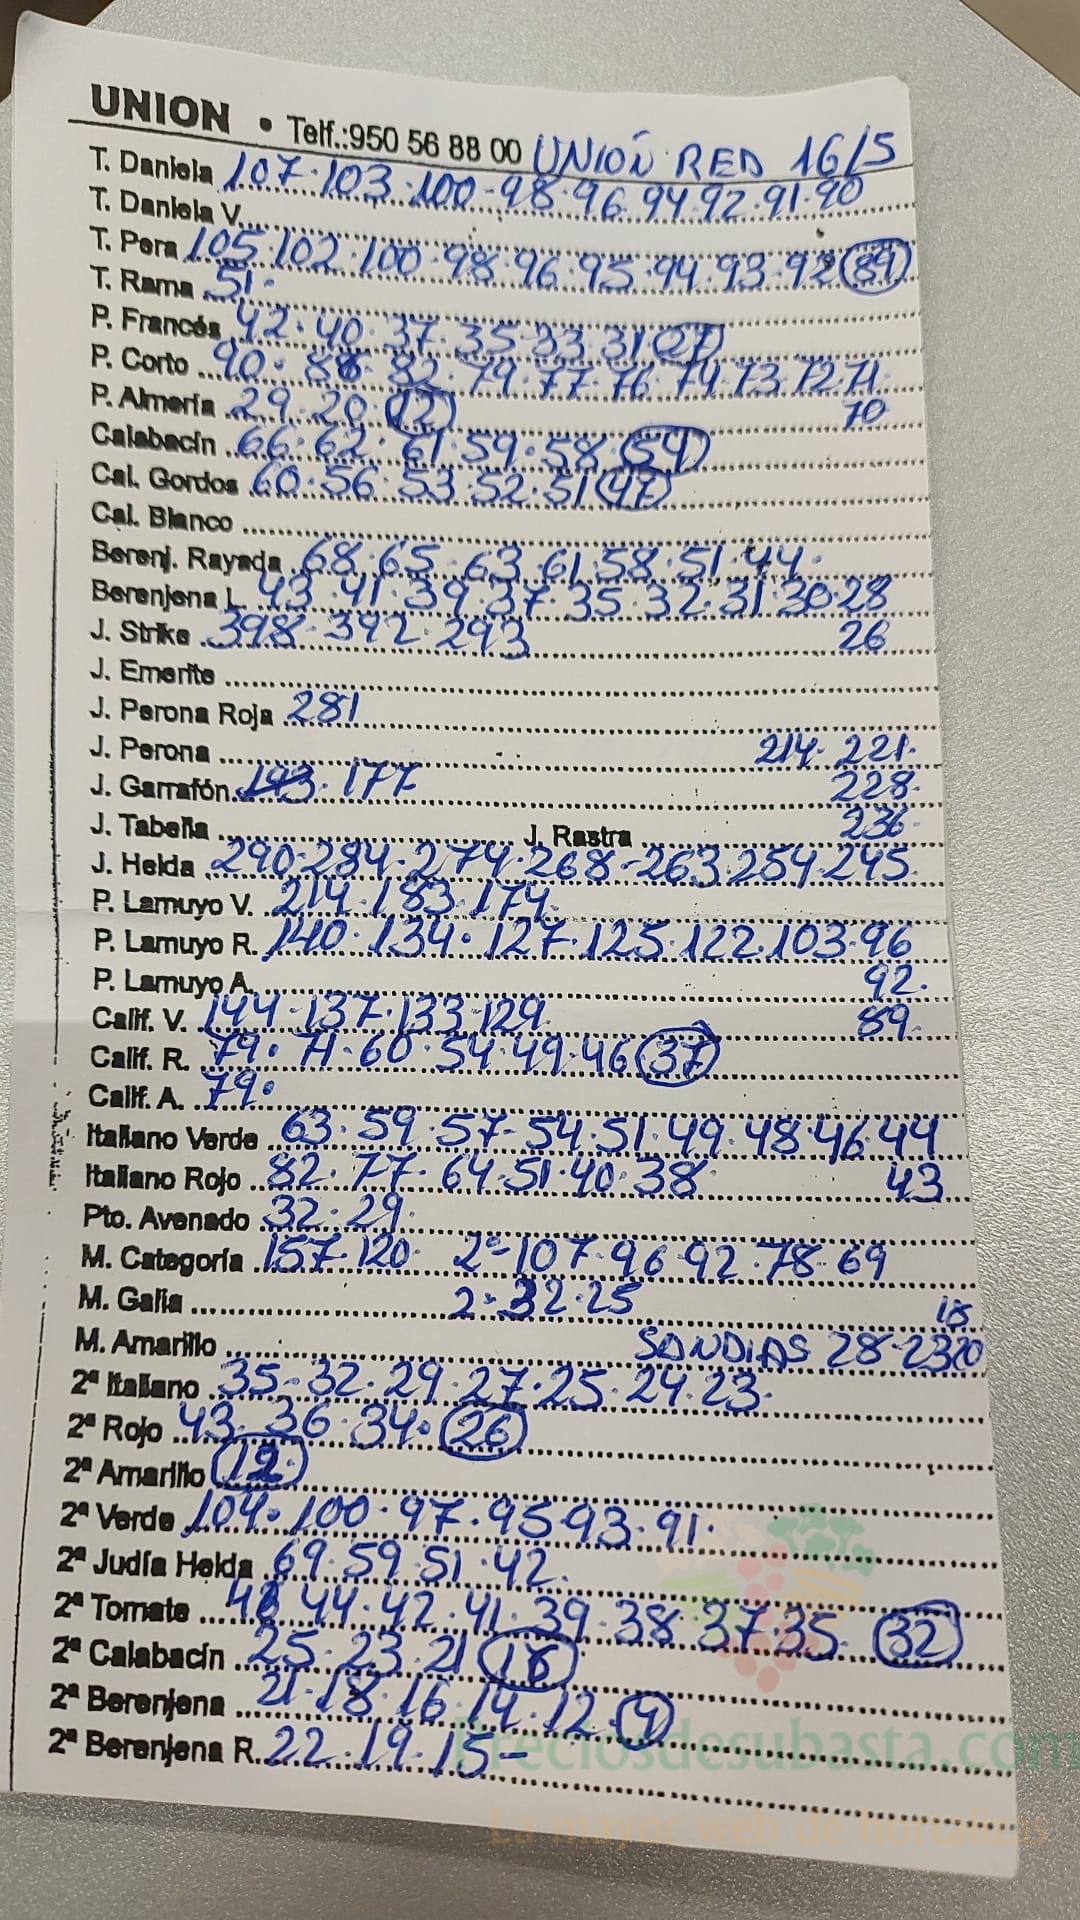 UNION • Telf.:950 56 88 00 UNIÓN RED 16/5
T. Daniela 107·103·100-98·96·94·92·91·90
T. Daniela V.
T. Pera 105·102·100·98·96·95·94·93·92 89
T. Rama 51·
P. Francés 42·40·37·35·33·31 27
P. Corto 90·88·82·79·77·76·74·73·72 71
70
P. Almería 29·20· 12
Calabacín 66·62·61·59·58· 54
Cal. Gordos 60·56·53·52·51 47
Cal. Blanco
Berenj. Rayada 68·65·63·61·58·51·44·
Berenjena L. 43·41·39·37·35·32·31·30·28
26
J. Strike 398·392·293
J. Emerite
J. Perona Roja 281
J. Perona 214·221·
228·
236·
J. Garrafón 193·177
J. Tabella J. Rastra
J. Helda 290·284·274·268-263·254·245·
P. Lamuyo V. 214·183·174·
P. Lamuyo R. 140·134·127·125·122·103·96
92·
89·
P. Lamuyo A.
Calif. V. 144-137·133·129
Calif. R. 79·71·60·54·49·46 37
Calif. A. 79·
Italiano Verde 63·59·57-54·51·49·48·46·44
43
Italiano Rojo 82·77·64·51·40·38
Pto. Avenado 32·29·
M. Categoría 157·120· 2ª-107·96·92·78·69
M. Galia 2ª 32·25
18
M. Amarillo SANDIAS 28-23 20
2ª Italiano 35-32·29·27·25·24·23·
2ª Rojo 43·36·34· 26
2ª Amarillo 12·
2ª Verde 104·100·97·95·93·91·
2ª Judía Helda 69·59·51·42·
2ª Tomate 44·42·41·39·38·37·35· 32
2ª Calabacín 25·23·21 18
2ª Berenjena 21·18·16·14·12· 9
2ª Berenjena R. 22·19·15-
Preciosdesubasta.com
La mayor web de hortalizas